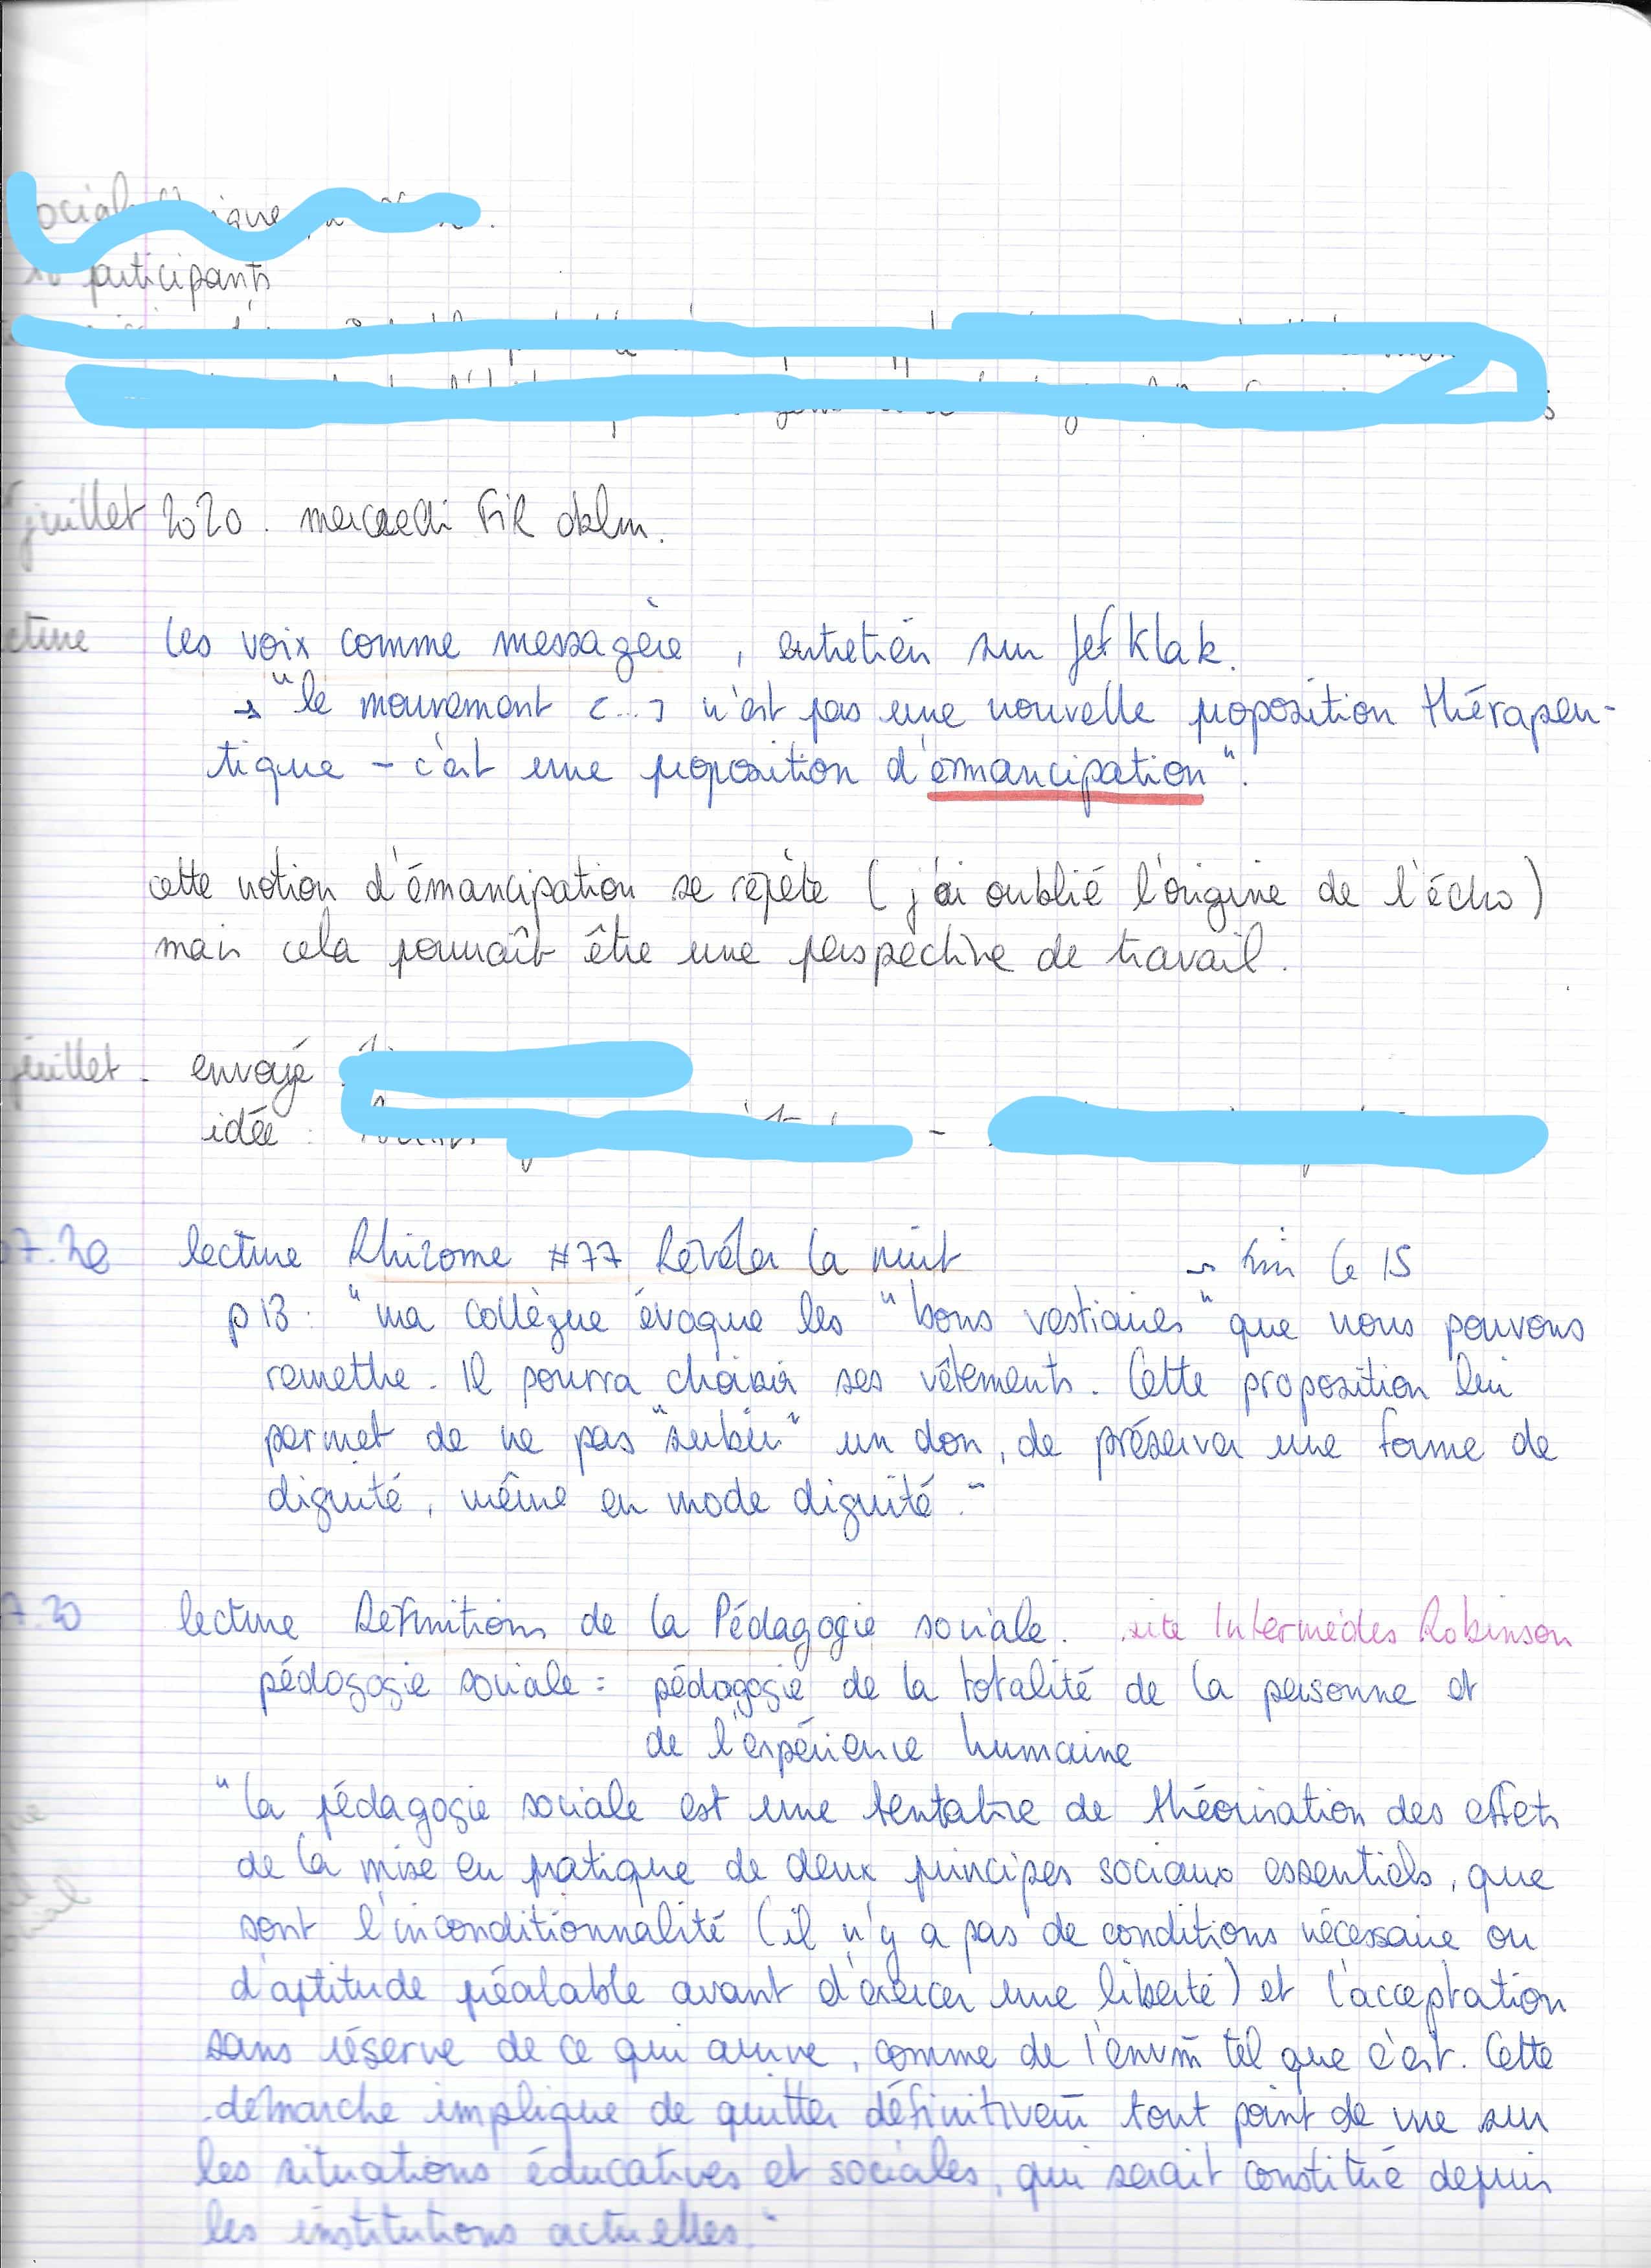 participants
juillet 2020. mercredi Fil
les voix comme messagère, entretien sur Jef Klak.
"le mouvement (...) n'est pas une nouvelle proposition thérapeu-
tique - c'est une proposition d'émancipation".
cette notion d'émancipation se répète (j'ai oublié l'origine de l'écho)
mais cela pourraît être une perspective de travail.
juillet. envoyé
idée :
lecture Rhizome #77 Révéler la nuit → fini le 15
p13 : "ma collègue évoque les "bons vestiaires" que nous pouvons
remettre. Il pourra choisir ses vêtements. Cette proposition lui
permet de ne pas "subir" un don, de préserver une forme de
dignité, même en mode dignité."
lecture Définitions de la Pédagogie sociale. site Intermèdes Robinson
pédagogie sociale = pédagogie de la totalité de la personne et
de l'expérience humaine
"la pédagogie sociale est une tentative de théorisation des effets
de la mise en pratique de deux principes sociaux essentiels, que
sont l'inconditionnalité (il n'y a pas de conditions nécessaire ou
d'aptitude préalable avant d'exercer une liberté) et l'acceptation
sans réserve de ce qui arrive, comme de l'envm̄ tel que c'est. Cette
démarche implique de quitter définitivem̄ tout point de vue sur
les situations éducatives et sociales, qui serait constitué depuis
les institutions actuelles."